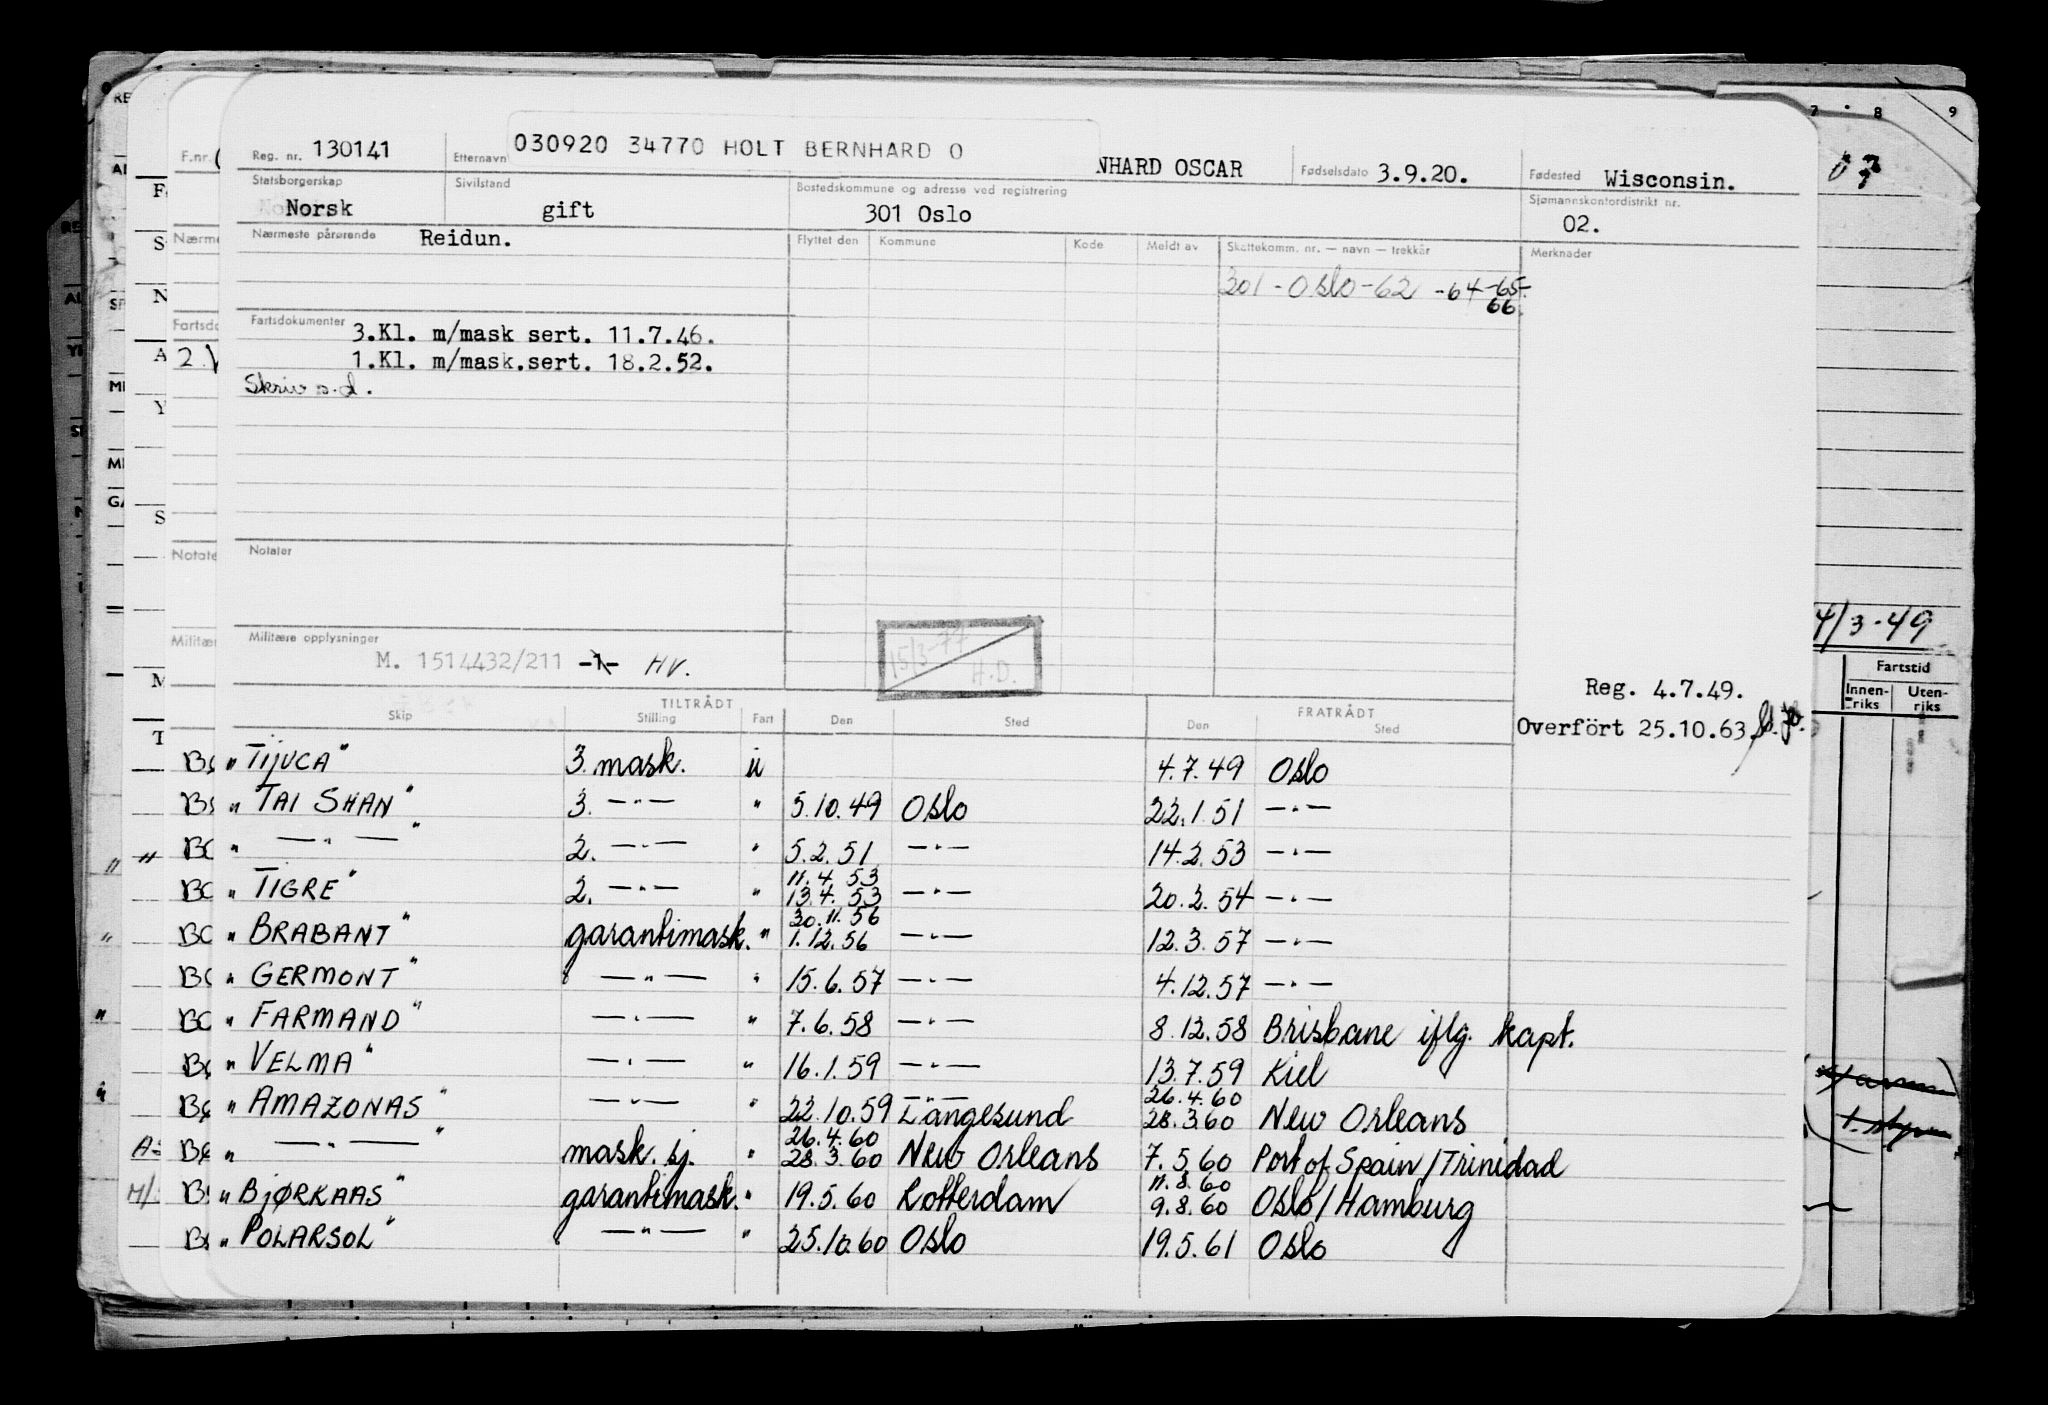 Reg. nr. 130141 Etternavn 030920 34770 HOLT BERNHARD O NHARD OSCAR Fødselsdato 3.9.20. Fødested Wisconsin.
Statsborgerskap Norsk Sivilstand gift Bostedskommune og adresse ved registrering 301 Oslo Sjømannskontordistrikt nr. 02.
Nærmeste pårørende Reidun. Flyttet den Kommune Kode Meldt av Skattekomm. nr. — navn — trekkår Merknader
301 - Oslo - 62 - 64 - 65 -
66
Fartsdokumenter 3.Kl. m/mask sert. 11.7.46.
1.Kl. m/mask.sert. 18.2.52.
Skriv s.d.
Notater
15/3-77 H.D.
4/3-49
Militære opplysninger
M. 1514432/211 -1- HV.
Fartstid
Innen-riks Uten-riks
Reg. 4.7.49.
Overfört 25.10.63
TILTRÅDT FRATRÅDT
Skip Stilling Fart Den Sted Den Sted
" TIJUCA" 3. mask. u 4.7.49 Oslo
" TAI SHAN" 3. —"— " 5.10.49 Oslo 22.1.51 —"—
" —"—" 2. —"— " 5.2.51 —"— 14.2.53 —"—
11.4.53
" TIGRE" 2. —"— " 13.4.53 —"— 20.2.54 —"—
30.11.56
" BRABANT" garantimask. " 1.12.56 —"— 12.3.57 —"—
" GERMONT" —"— " 15.6.57 —"— 4.12.57 —"—
" FARMAND" —"— " 7.6.58 —"— 8.12.58 Brisbane iflg. kapt.
" VELMA" —"— " 16.1.59 —"— 13.7.59 Kiel
26.4.60
" AMAZONAS" —"— " 22.10.59 Langesund 28.3.60 New Orleans
26.4.60
" —"—" mask. sj. " 28.3.60 New Orleans 7.5.60 Port of Spain/Trinidad
11.8.60
" BJØRKAAS" garantimask. " 19.5.60 Rotterdam 9.8.60 Oslo/Hamburg
" POLARSOL" —"— " 25.10.60 Oslo 19.5.61 Oslo